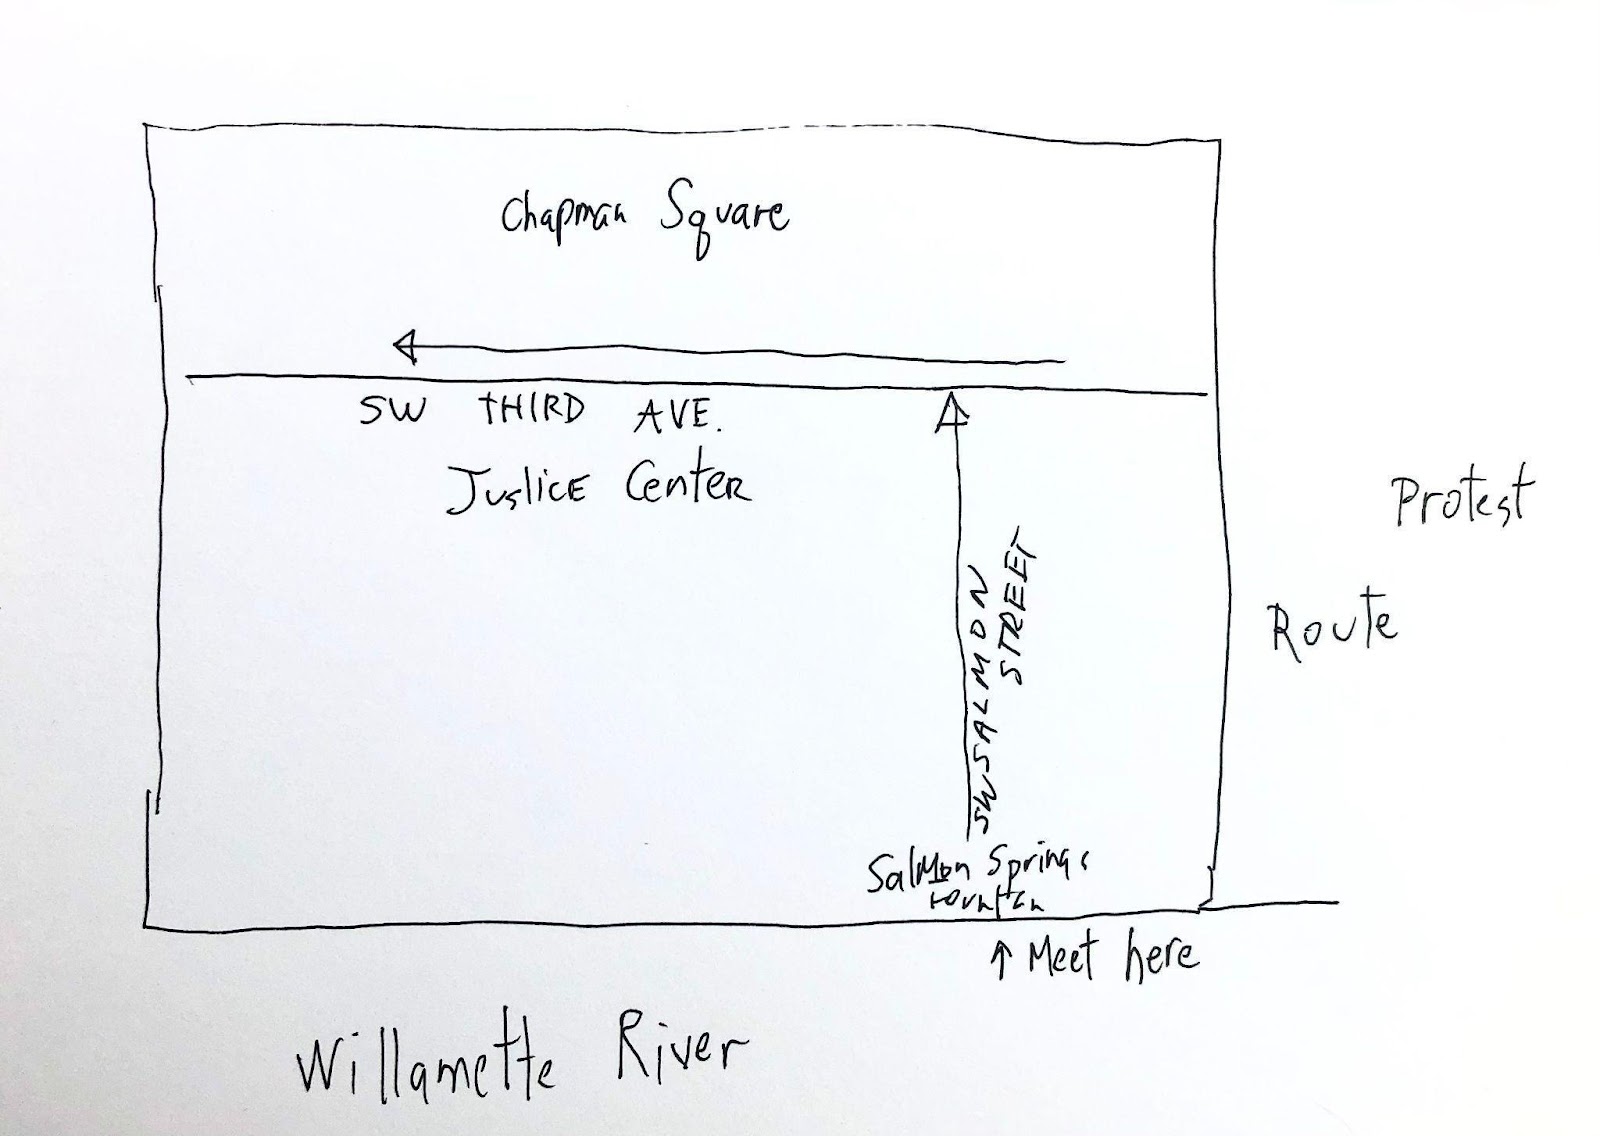 Chapman Square
SW THIRD AVE.
Justice Center
Protest
Route
SW SALMON
STREET
Salmon Springs
Fountain
↑ Meet here
Willamette River